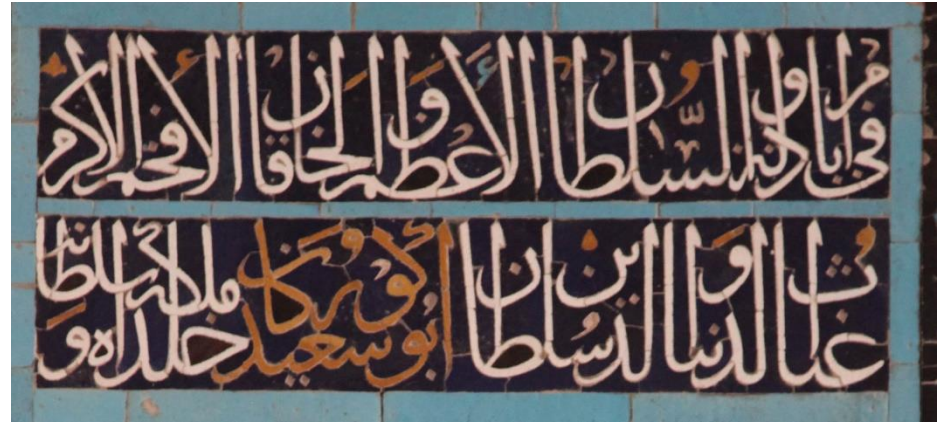 فى ايام دولة السلطان الأعظم و الخاقان الأفخم الاكرم
غياث الدنيا و الدين سلطان أبو سعيد كوركان خلد الله ملكه و سلطانه